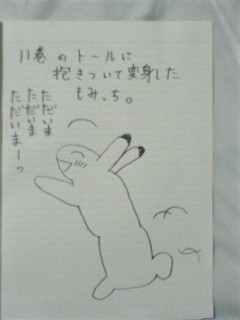 11巻のトールに
抱きついて変身した
もみっち。
ただいま
ただいま
ただいまーっ